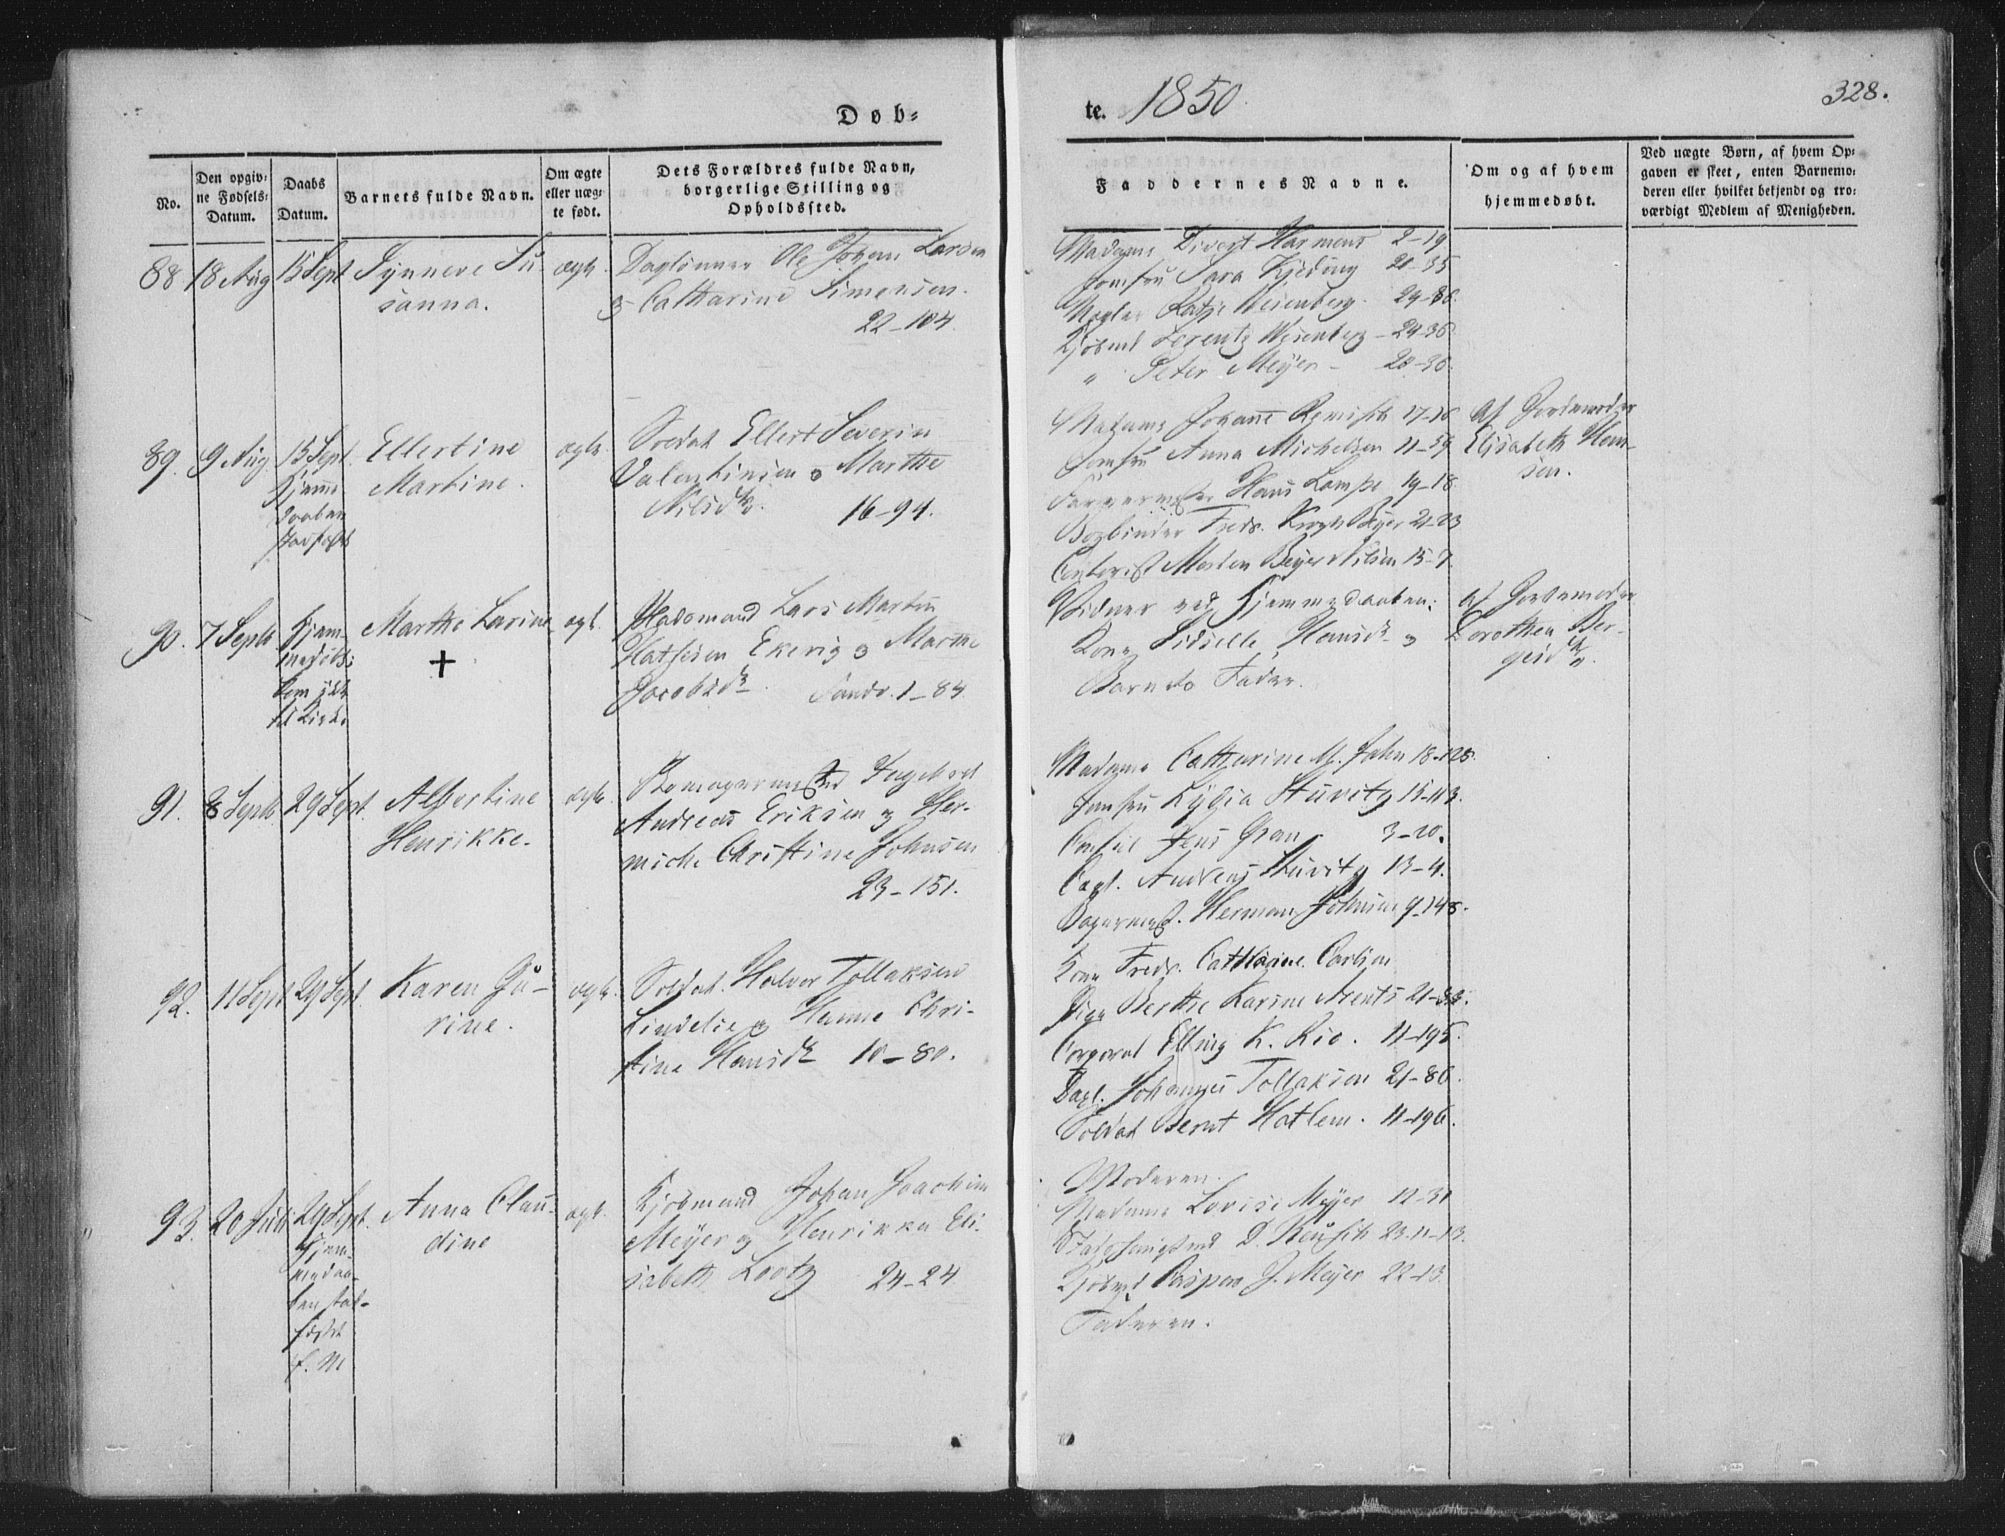 Døb=
te. 1850
328.
No.
Den opgiv=
ne Fødsels=
Datum.
Daabs
Datum.
Barnets fulde Navn.
Om ægte
eller uæg=
te født.
Dets Forældres fulde Navn,
borgerlige Stilling og
Opholdssted.
Faddernes Navne.
Om og af hvem
hjemmedøbt.
Ved uægte Børn, af hvem Op=
gaven er skeet, enten Barnemo=
deren eller hvilket bekjendt og tro=
værdigt Medlem af Menigheden.
88
18 Aug
15 Sept
Synneve Su
sanna.
ægte.
Daglønner Ole Johan Larsen
& Catharine Simensen.
22-104.
Madame Divert Harmens 2-19
Jomfru Sara Kjeding 20-35
Mægler Weisenberg. 24-36.
Kjøbmd Lorentz Wesenberg - 24-36
" Peter Meÿer - 20-36.
89.
9 Aug
15 Sept.
Hjeme
daaben
stadfæstet
Ellertine
Martine.
ægte.
Soldat Ellert Severin
Valentinsen og Marthe
Nilsdtr.
16-94.
Madame Johanne 17-16
Jomfru Anna Michelsen 11-59
Farvermester Hans Lampe 19-18
Bogbinder Fredr. Krogh Beyer 21-23
Contorist Morten Beyer Nilsen 15-7.
af Jordemoder
Elisabeth Han-
sen.
90.
7 Septb
Hjem-
medøbt;
kom ikke
til Kirke
Marthe Larine
+
ægt.
Lars Martin
Mathesen Ekerig og Marthe
Jacobsdtr. Sandv. 1-84.
Vidner ved Hjemmedaaben:
Kone Sidselle Hansdtr og
Barnets Fader.
af Jordemoder
Dorothea Ber-
91.
8 Septb.
29 Sept.
Albertine
Henrikke.
ægte.
Skomagermester Ingebret
Andreas Eriksen og Her-
miche Christine Johnsen
23-151.
Madame Catharine M. Jahn 18-128.
Jomfru Lydia Stuvitz 15-113.
Consul Jens Gran 3-20.
Capt. Andreas Stuvitz 13-4.
Bagermest. Herman Johnsen 9-148.
92.
11 Sept
29 Sept.
Karen Gu-
rine.
ægte.
Soldat Halvor Tollaksen
Lindelie og Hanne Chri-
stine Hansdtr 10-80.
Kone Fredr. Cathrine Carlsen
Pige Berthe Karine Arents 21-83.
Corporal Elling K. Rio. 11-195.
Dagl. Johannes Tollaksen 21-86.
Soldat Bernt Hatlem. 11-196.
93.
20 Juli
29 Sept.
Hjem-
medaa-
ben stad-
fæstet
f. M
Anna Clau-
dine
ægt.
Kjøbmand Johan Joachim
Meÿer og Henrikka Eli-
sabeth Lootz 24-24.
Moderen.
Madame Lovise Meyer 12-31
D. 23-11-13.
Kjøbmd Caspar J. Meyer 22-13.
Faderen.